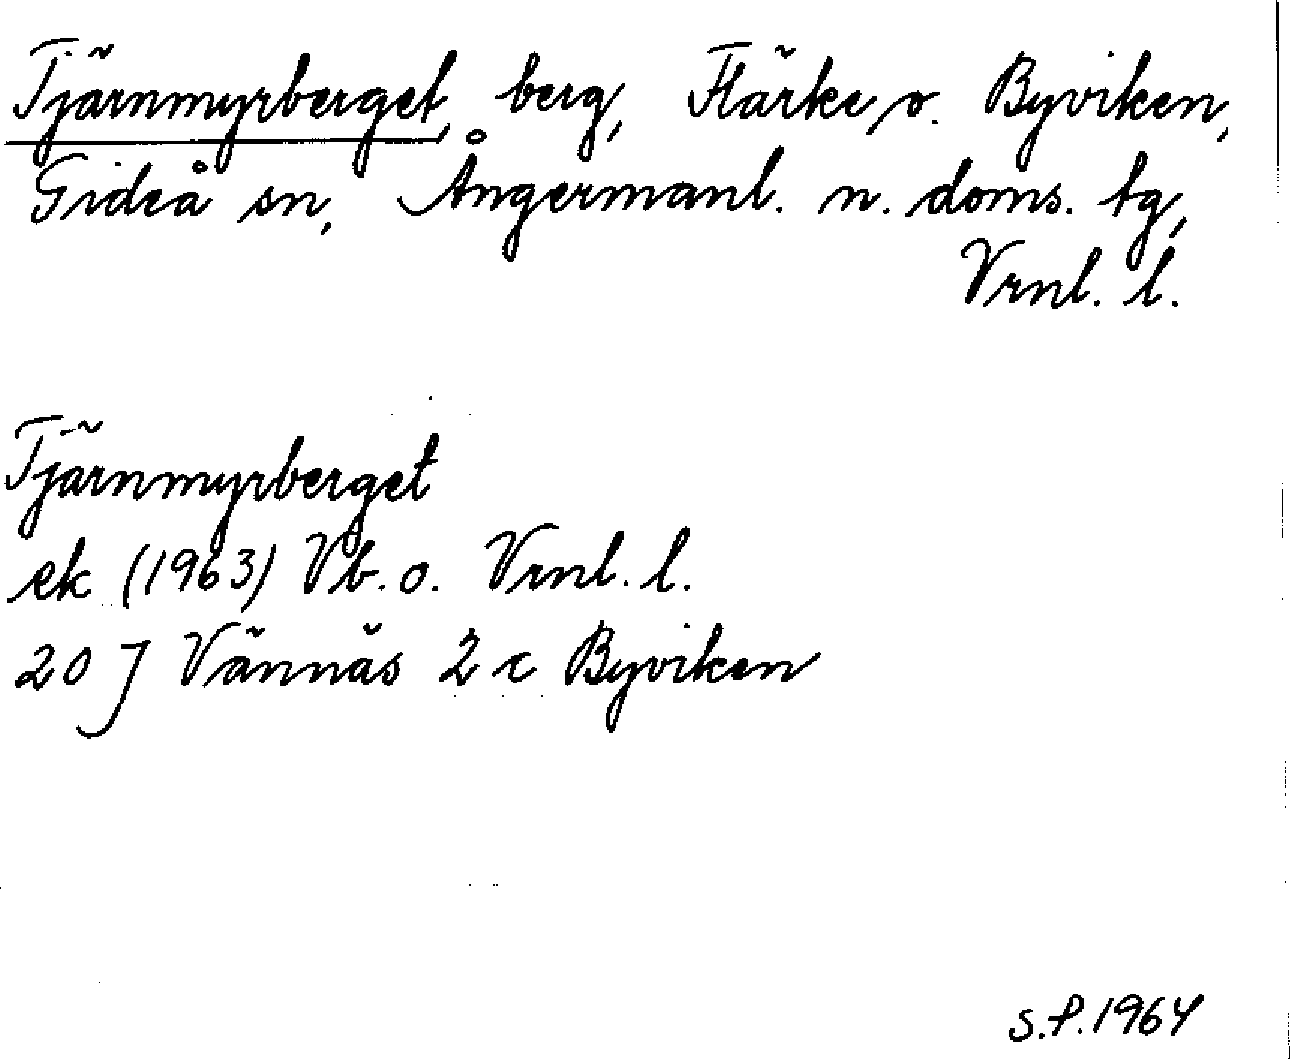 Tjärnmyrberget, berg, Flärke o. Byviken,
Gideå sn, Ångermanl. n. doms. tg,
Vrnl. l.
Tjärnmyrberget
ek (1963) Vb. o. Vrnl. l.
20 J Vännäs 2 c Byviken
S.P. 1964